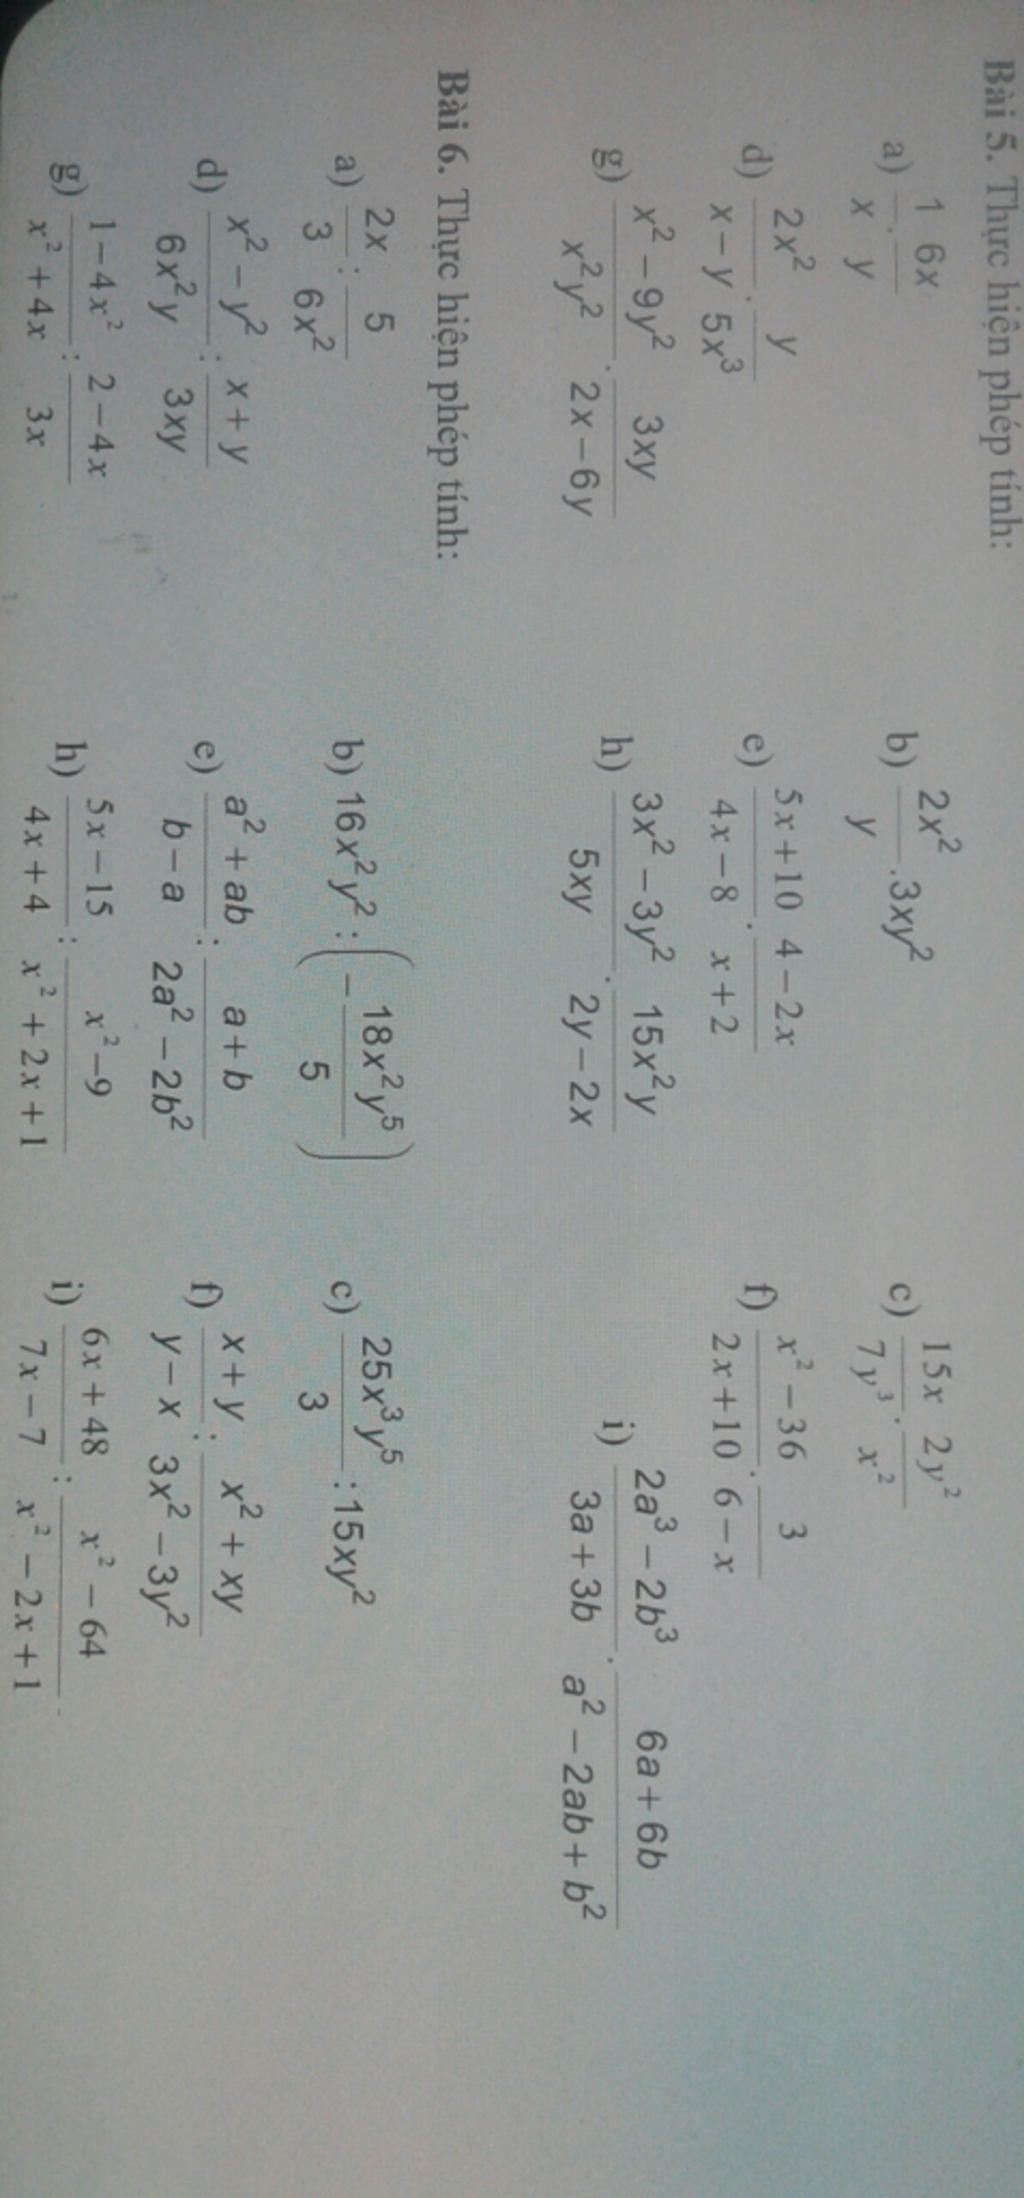 Bài 5. Thực hiện phép tính:
a) 1/x . 6x/y b) 2x²/y . 3xy² c) 15x/7y³ . 2y²/x²
d) 2x²/(x−y) . y/5x³ e) (5x+10)/(4x−8) . (4−2x)/(x+2) f) (x²−36)/(2x+10) . 3/(6−x)
g) (x²−9y²)/x²y² . 3xy/(2x−6y) h) (3x²−3y²)/5xy . 15x²y/(2y−2x) i) (2a³−2b³)/(3a+3b) . (6a+6b)/(a²−2ab+b²)
Bài 6. Thực hiện phép tính:
a) 2x/3 : 5/6x² b) 16x²y² : (−18x²y⁵/5) c) 25x³y⁵/3 : 15xy²
d) (x²−y²)/6x²y : (x+y)/3xy e) (a²+ab)/(b−a) : (a+b)/(2a²−2b²) f) (x+y)/(y−x) : (x²+xy)/(3x²−3y²)
g) (1−4x²)/(x²+4x) : (2−4x)/3x h) (5x−15)/(4x+4) : (x²−9)/(x²+2x+1) i) (6x+48)/(7x−7) : (x²−64)/(x²−2x+1)